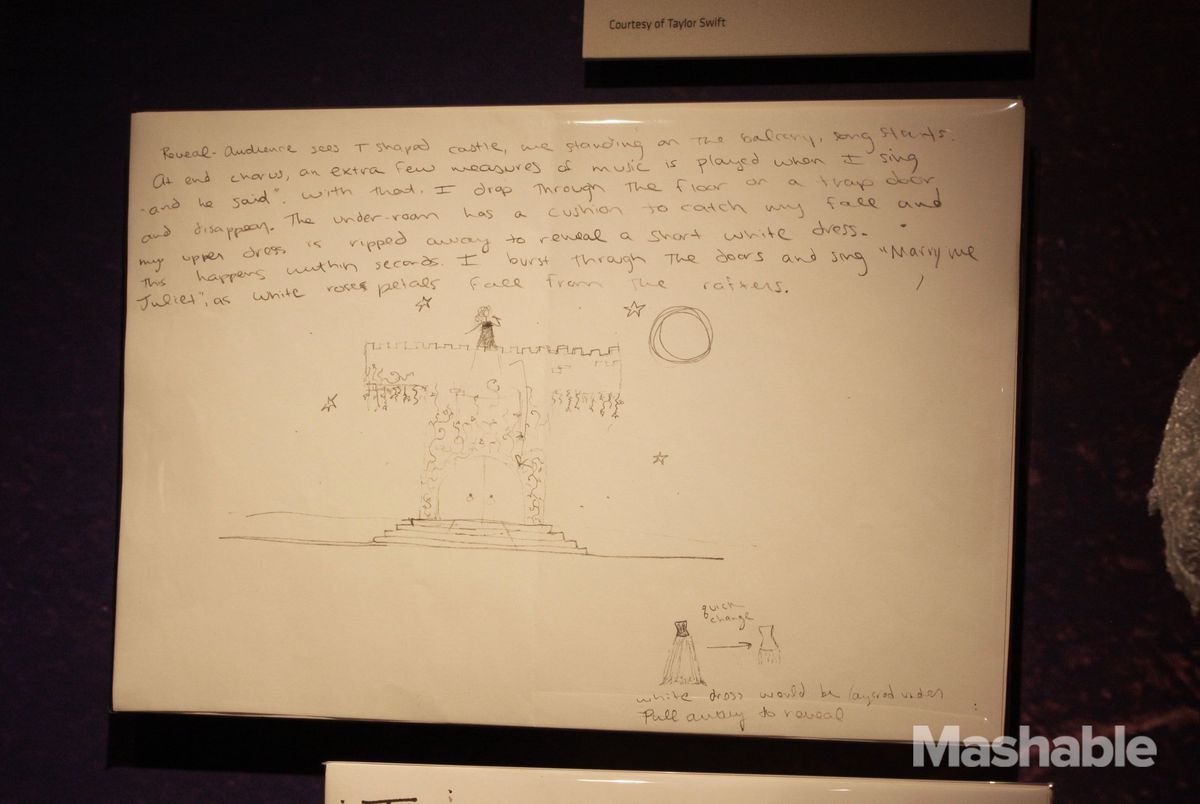 Courtesy of Taylor Swift
Reveal- Audience sees T shaped castle, me standing on the balcony, song starts.
At end chorus, an extra few measures of music is played when I sing
"and he said". With that, I drop through the floor on a trap door
and disappear. The under-room has a cushion to catch my fall and
my upper dress is ripped away to reveal a short white dress.
This happens within seconds. I burst through the doors and sing "Marry me
Juliet", as white rose petals fall from the rafters.
quick
change
white dress would be layered under
Pull away to reveal
Mashable